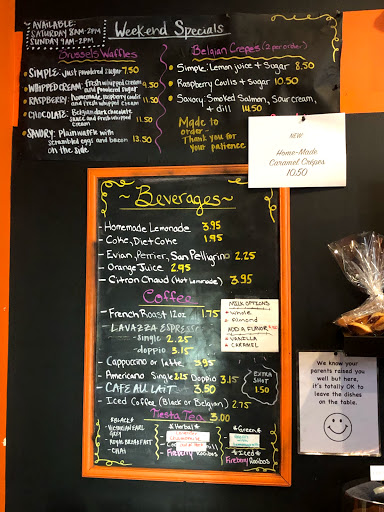 AVAILABLE:
SATURDAY 8AM-2PM
SUNDAY 9AM-2PM
Weekend Specials
Brussels Waffles
• SIMPLE: Just powdered sugar 7.50
• WHIPPED CREAM: Fresh whipped cream and powdered sugar 9.50
• RASPBERRY: homemade raspberry coulis and fresh whipped cream 11.50
• CHOCOLATE: Belgian dark chocolate sauce and fresh whipped cream 11.50
• SAVORY: Plain waffle with scrambled eggs and bacon on the side 13.50
Belgian Crêpes (2 per order)
• Simple: Lemon juice + Sugar 8.50
• Raspberry Coulis + Sugar 10.50
• Savory: Smoked Salmon, Sour cream, + dill 14.50
Made to
order -
Thank you for
your patience
NEW
Home-Made
Caramel Crêpes
10.50
~ Beverages ~
- Homemade Lemonade 3.95
- Coke, Diet Coke 1.95
- Evian, Perrier, San Pelligrino 2.25
- Orange Juice 2.95
- Citron Chaud (Hot Lemonade) 3.95
Coffee
- French Roast 12oz 1.75
- LAVAZZA ESPRESSO
- single 2.25
- doppio 3.15
- Cappuccino or latte 3.95
- Americano Single 2.25 Doppio 3.15
- CAFE AU LAIT 3.50
- Iced Coffee (Black or Belgian) 2.75
MILK OPTIONS
• Whole
• Almond
ADD A FLAVOR
• VANILLA
• CARAMEL
EXTRA
SHOT
1.50
Fiesta Tea 3.00
* BLACK *
- VICTORIAN EARL
GREY
- ROYAL BREAKFAST
- CHAI
* Herbal *
Fireberry Rooibos
* Green *
* Iced *
Fireberry Rooibos
We know your
parents raised you
well but here,
it's totally OK to
leave the dishes
on the table.